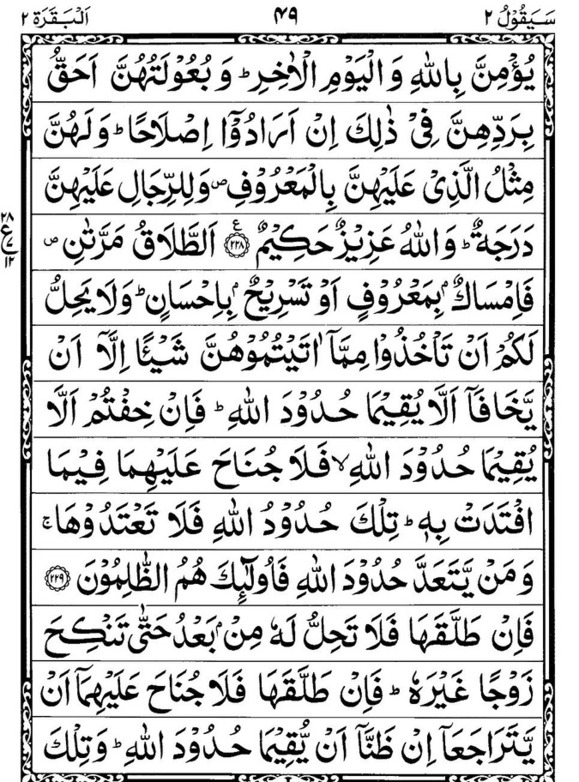 سَيَقُوْلُ ٢ ٤٩ اَلْبَقَرَة ٢
يُؤْمِنَّ بِاللّٰهِ وَالْيَوْمِ الْاٰخِرِ ؕ وَ بُعُوْلَتُهُنَّ اَحَقُّ
بِرَدِّهِنَّ فِىْ ذٰلِكَ اِنْ اَرَادُوْۤا اِصْلَاحًا ؕ وَلَهُنَّ
مِثْلُ الَّذِىْ عَلَيْهِنَّ بِالْمَعْرُوْفِ ۪ وَلِلرِّجَالِ عَلَيْهِنَّ
دَرَجَةٌ ؕ وَاللّٰهُ عَزِيْزٌ حَكِيْمٌ ࣖ ۝٢٢٨ اَلطَّلَاقُ مَرَّتٰنِ ۪
٢٨ ع ١٢
فَاِمْسَاكٌۢ بِمَعْرُوْفٍ اَوْ تَسْرِيْحٌۢ بِاِحْسَانٍ ؕ وَلَا يَحِلُّ
لَكُمْ اَنْ تَاْخُذُوْا مِمَّاۤ اٰتَيْتُمُوْهُنَّ شَيْـًٔا اِلَّاۤ اَنْ
يَّخَافَاۤ اَلَّا يُقِيْمَا حُدُوْدَ اللّٰهِ ؕ فَاِنْ خِفْتُمْ اَلَّا
يُقِيْمَا حُدُوْدَ اللّٰهِ ۙ فَلَا جُنَاحَ عَلَيْهِمَا فِيْمَا
افْتَدَتْ بِهٖ ؕ تِلْكَ حُدُوْدُ اللّٰهِ فَلَا تَعْتَدُوْهَا ۚ
وَمَنْ يَّتَعَدَّ حُدُوْدَ اللّٰهِ فَاُولٰٓئِكَ هُمُ الظّٰلِمُوْنَ ۝٢٢٩
فَاِنْ طَلَّقَهَا فَلَا تَحِلُّ لَهٗ مِنْۢ بَعْدُ حَتّٰى تَنْكِحَ
زَوْجًا غَيْرَهٗ ؕ فَاِنْ طَلَّقَهَا فَلَا جُنَاحَ عَلَيْهِمَاۤ اَنْ
يَّتَرَاجَعَاۤ اِنْ ظَنَّاۤ اَنْ يُّقِيْمَا حُدُوْدَ اللّٰهِ ؕ وَتِلْكَ